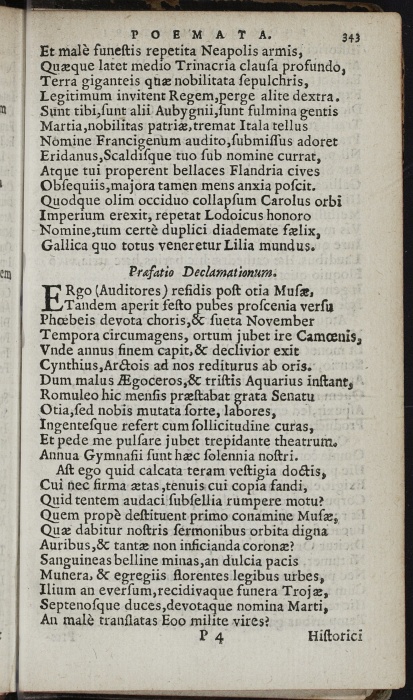 POEMATA. 343
Et malè funestis repetita Neapolis armis,
Quæque latet medio Trinacria clausa profundo,
Terra giganteis quæ nobilitata sepulchris,
Legitimum invitent Regem, perge alite dextra.
Sunt tibi, sunt alii Aubygnii, sunt fulmina gentis
Martia, nobilitas patriæ, tremat Itala tellus
Nomine Francigenum audito, submissus adoret
Eridanus, Scaldisque tuo sub nomine currat,
Atque tui properent bellaces Flandria cives
Obsequiis, majora tamen mens anxia poscit.
Quodque olim occiduo collapsum Carolus orbi
Imperium erexit, repetat Lodoicus honoro
Nomine, tum certè duplici diademate fælix,
Gallica quo totus veneretur Lilia mundus.
Præfatio Declamationum.
ERgo (Auditores) residis post otia Musæ,
Tandem aperit festo pubes proscenia versu
Phœbeis devota choris, & sueta November
Tempora circumagens, ortum jubet ire Camœnis,
Vnde annus finem capit, & declivior exit
Cynthius, Arctois ad nos rediturus ab oris.
Dum malus Ægoceros, & tristis Aquarius instant,
Romuleo hic mensis præstabat grata Senatu
Otia, sed nobis mutata sorte, labores,
Ingentesque refert cum sollicitudine curas,
Et pede me pulsare jubet trepidante theatrum.
Annua Gymnasii sunt hæc solennia nostri.
Ast ego quid calcata teram vestigia doctis,
Cui nec firma ætas, tenuis cui copia fandi,
Quid tentem audaci subsellia rumpere motu?
Quem propè destituent primo conamine Musæ,
Quæ dabitur nostris sermonibus orbita digna
Auribus, & tantæ non inficianda coronæ?
Sanguineas belline minas, an dulcia pacis
Munera, & egregiis florentes legibus urbes,
Ilium an eversum, recidivaque funera Trojæ,
Septenosque duces, devotaque nomina Marti,
An malè translatas Eoo milite vires?
P 4 Historici